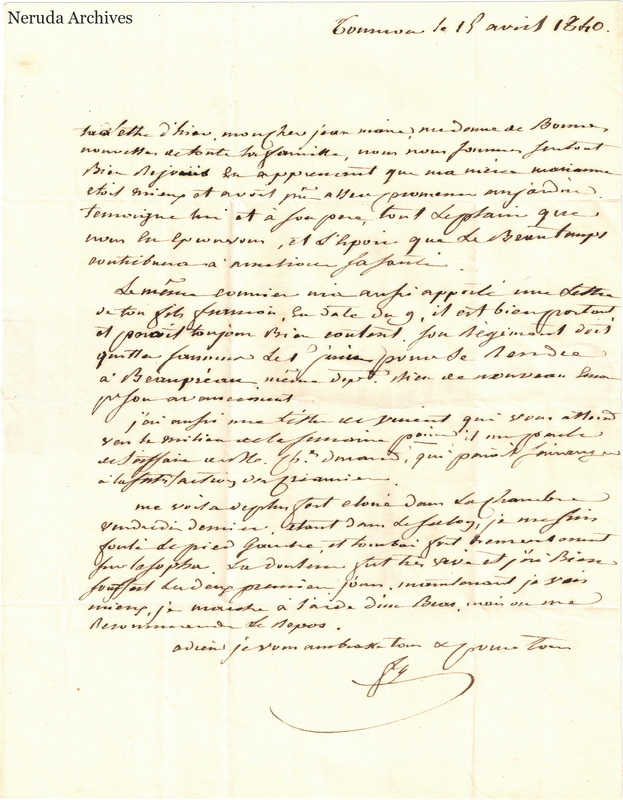 Neruda Archives
Tournon le 15 avril 1840.
ta Lettre d'hier, mon cher jean marie, me donne de Bonnes
nouvelles de toute ta famille, nous nous sommes surtout
Bien Rejouis En apprenant que ma nièce marianne
etoit mieux et avoit pu aller promener au jardin
temoigne lui et à son pere, tout Le plaisir que
nous En Eprouvons, et L'Espoir que Le Beau temps
contribuera à ameliorer sa santé.
Le même courrier m'a aussi apporté une Lettre
de ton fils, En date du 9, il est bien portant
et paroit toujours Bien content. son Régiment doit
quitter le 1er juin pour se Rendre
à Beaupréau, même dept. Rien de nouveau Encore
pr son avancement
j'ai aussi une Lettre de vincent qui vous attend
vers le milieu de la semaine il me parle
de L'affaire de Mr. Chs durand, qui paroit s'arranger
à la satisfaction du premier.
me voilà de plus fort cloué dans La chambre
vendredi dernier, etant dans Le salon, je me suis
foulé Le pied Gauche, et tombai fort heureusement
sur Le sopha. La douleur fut très vive et j'ai Bien
souffert Les deux premiers jours. maintenant je vais
mieux, je marche à l'aide d'un Bras, mais on me
Recommande Le Repos.
adieu je vous embrasse tous & pour tous